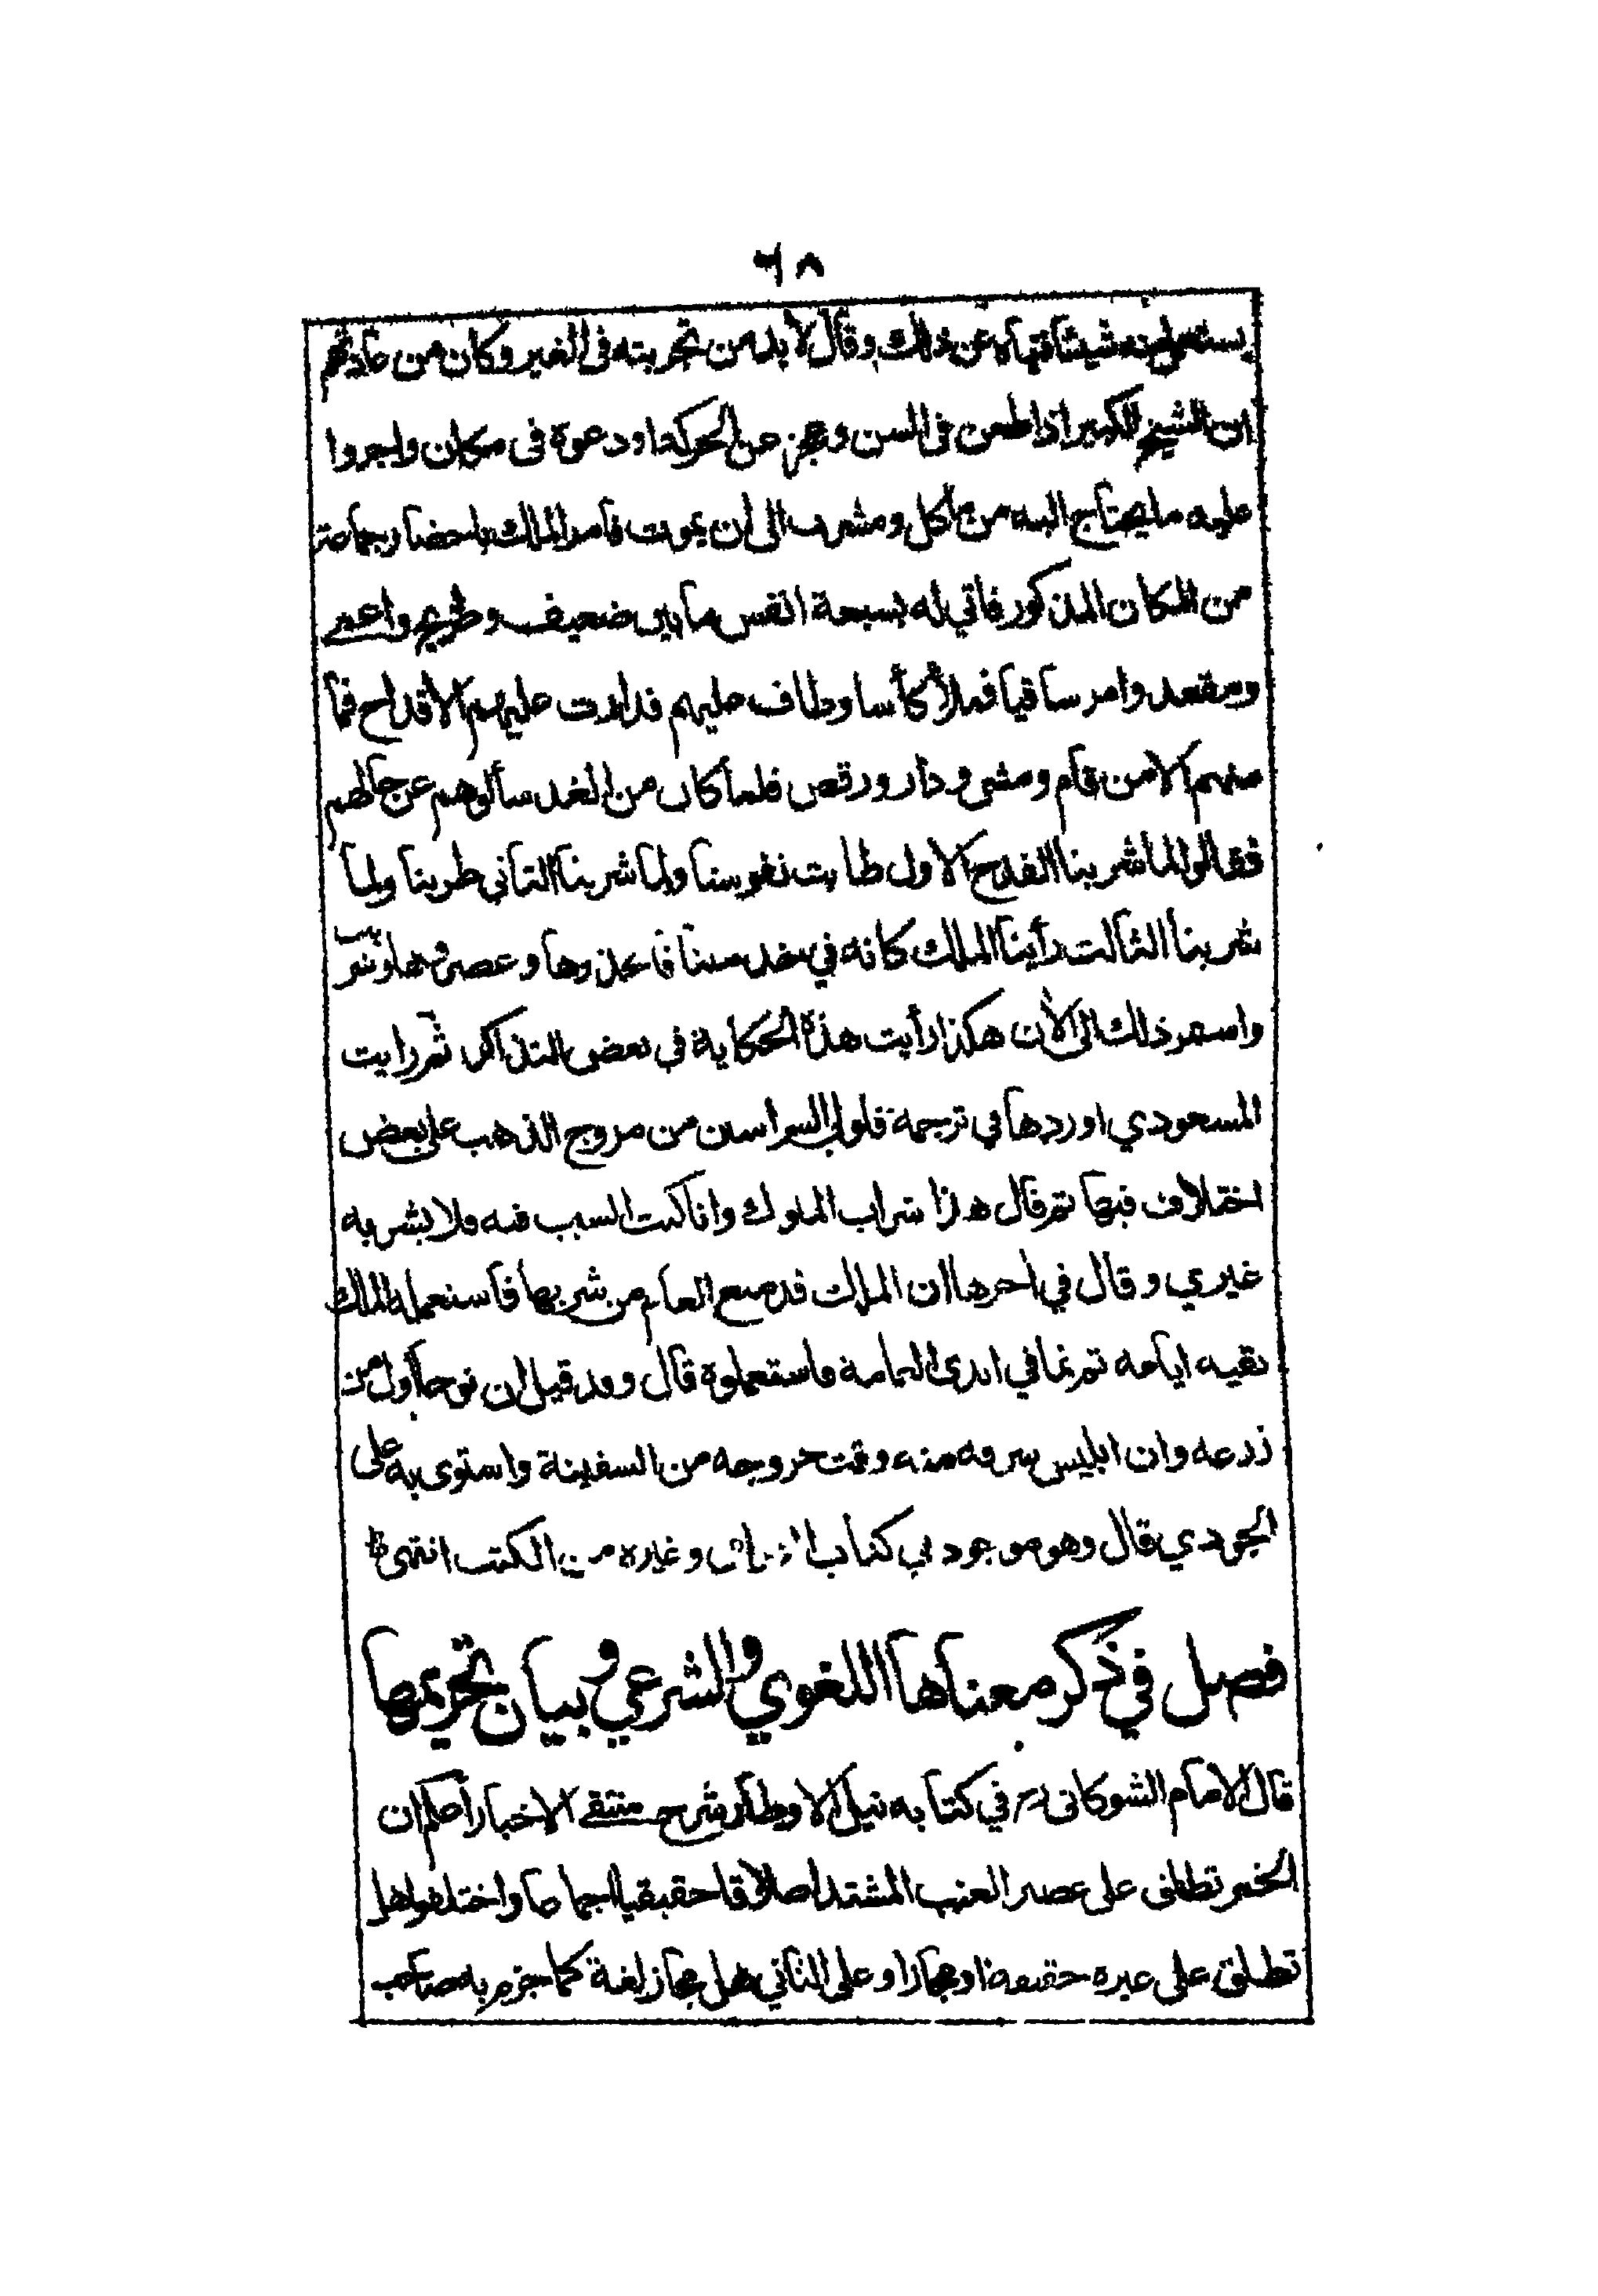 ٦٨
يستعمل منه شيئا فنهاه عن ذلك وقال لا بد من تجربته في الغير وكان من عادتهم
ان الشيخ الكبير اذا طعن في السن وعجز عن الحركة اودعوه في مكان واجروا
عليه ما يحتاج اليه من مأكل ومشرب الى ان يموت فأمر الملك باحضار جماعة
من المكان المذكور فاتي له بسبعة انفس ما بين ضعيف و واعمى
ومقعد وامر ساقيا فملأ كأسا وطاف عليهم فدارت عليهم الأقداح فما
منهم الا من قام ومشى ودار ورقص فلما كان من الغد سألوهم عن حالهم
فقالوا لما شربنا القدح الاول طابت نفوسنا ولما شربنا الثاني طربنا ولما
شربنا الثالث رأينا الملك كانه في فاتخذوها وعصروها وشربت
واستمر ذلك الى الأن هكذا رأيت هذه الحكاية في بعض التذاكر ثم رايت
المسعودي اوردها في ترجمة من مروج الذهب على بعض
اختلاف فيها ثم قال هذا شراب الملوك وانا كنت السبب فيه فلا يشربه
غيري وقال في اخرها ان الملك قد منع العام من شربها فاستعمله الملك
بقية ايامه ثم نما في ايدي العامة فاستعملوه قال وقد قيل ان نوحا أول من
زرعه وان ابليس سرقه منه وقت خروجه من السفينة واستوى به على
الجودي قال وهو موجود في كتاب وغيره من الكتب انتهى
فصل في ذكر معناها اللغوي والشرعي وبيان تحريمها
قال الامام الشوكاني في كتابه نيل الاوطار شرح منتقى الاخبار أعلم ان
الخمر تطلق على عصير العنب المشتد اطلاقا حقيقيا اجماعا واختلفوا هل
تطلق على غيره حقيقة او مجازا وعلى الثاني هل مجاز لغة كما جزم به صاحب